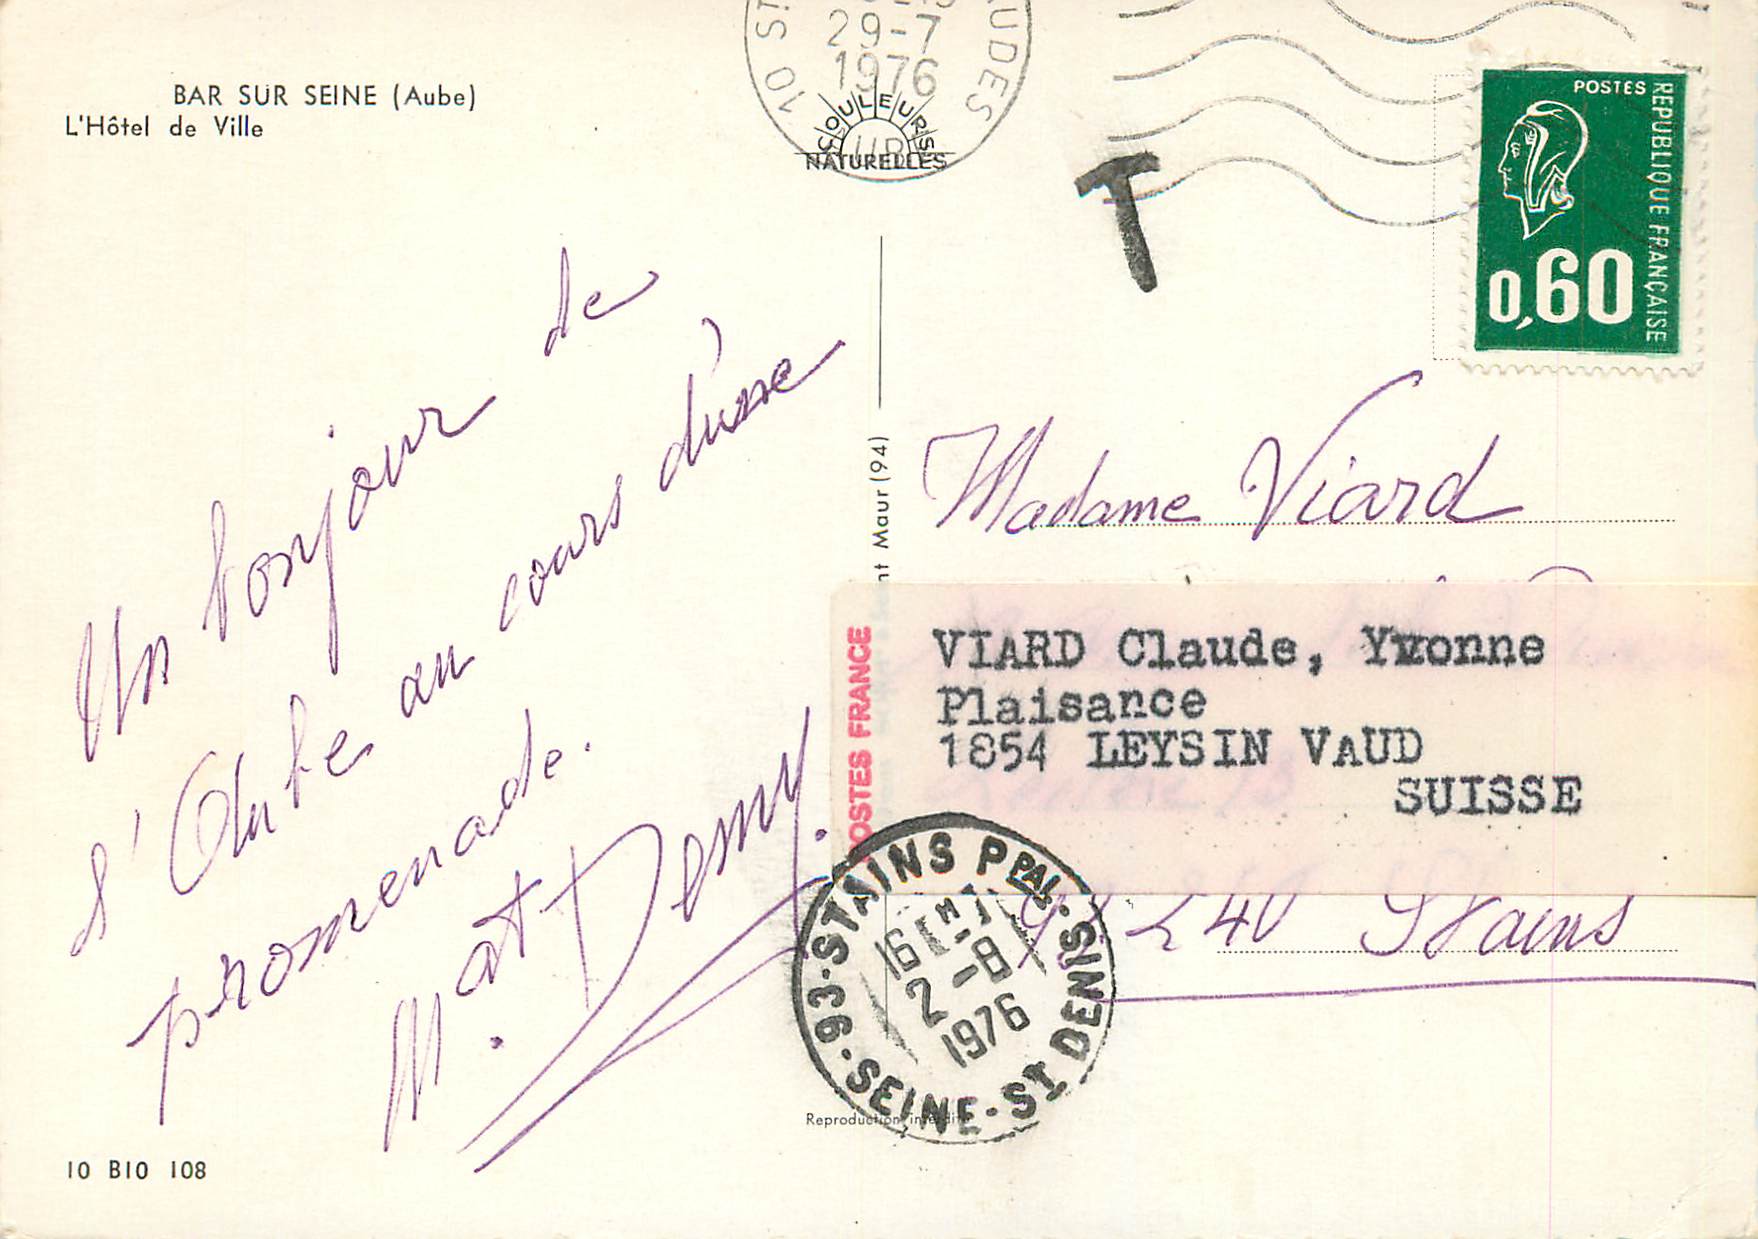 BAR SUR SEINE (Aube)
L'Hôtel de Ville
29-7
1976
COULEURS
NATURELLES
T
POSTES
REPUBLIQUE FRANÇAISE
0,60
Un bonjour de
l'Aube au cours d'une
promenade.
M. et Demy.
Maur (94)
Madame Viard
POSTES FRANCE
VIARD Claude, Yvonne
Plaisance
1854 LEYSIN VAUD
SUISSE
240 Stains
93-STAINS PPAL.
16H
2-8
1976
SEINE-ST DENIS
Reproduction interdite
10 B10 108